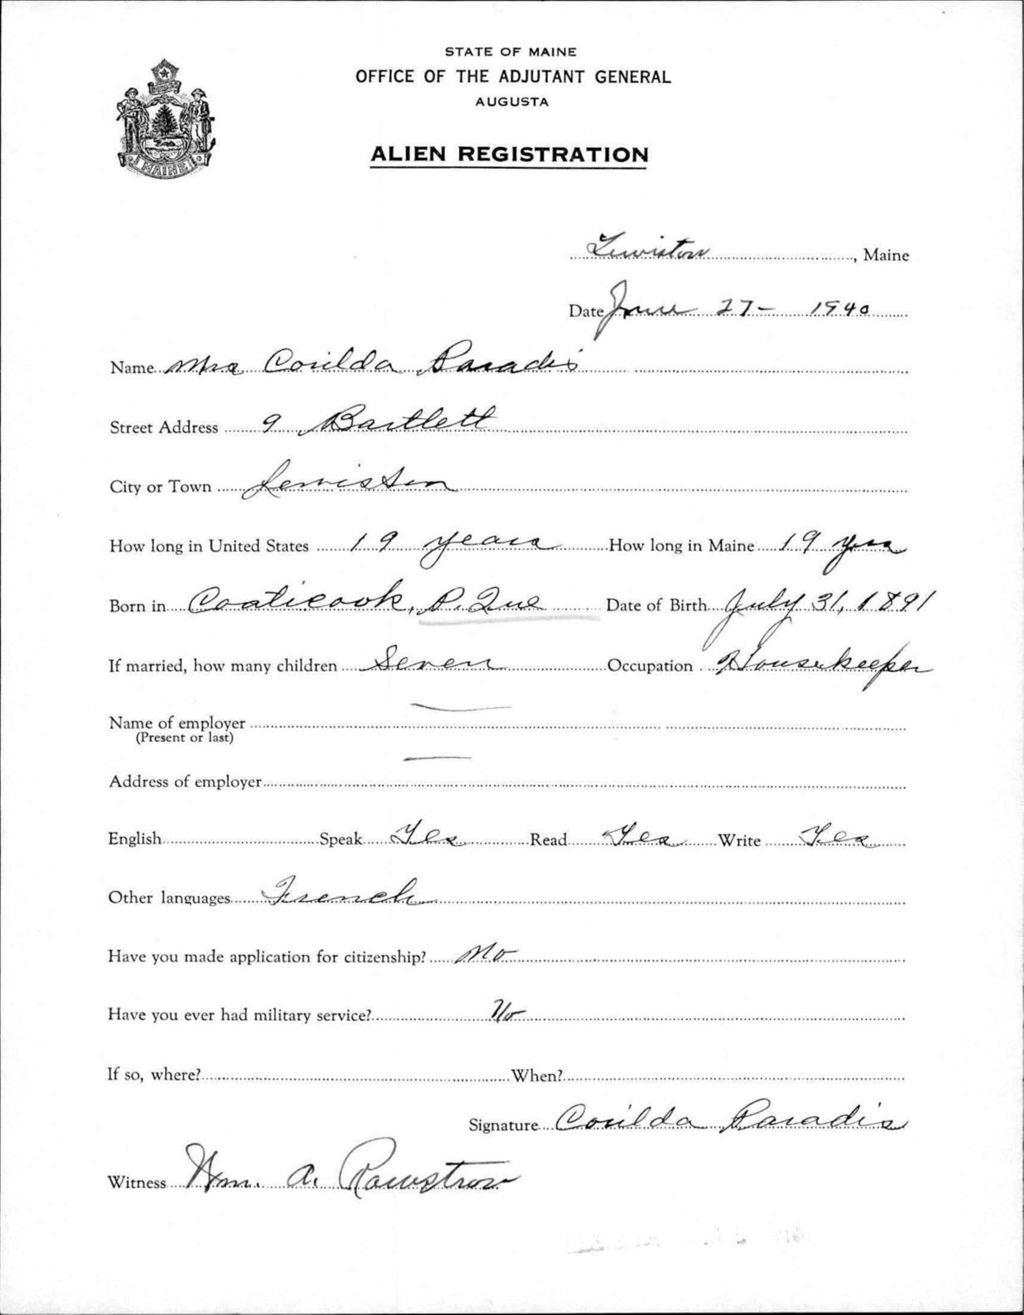 STATE OF MAINE
OFFICE OF THE ADJUTANT GENERAL
AUGUSTA
ALIEN REGISTRATION
MAINE
Lewiston, Maine
Date June 27- 1940
Name Mrs Corilda Paradis
Street Address 9 Bartlett
City or Town Lewiston
How long in United States 19 years How long in Maine 19 yrs
Born in Coaticook, P. Que Date of Birth July 31, 1891
If married, how many children Seven Occupation Housekeeper
Name of employer
(Present or last)
Address of employer
English Speak Yes Read Yes Write Yes
Other languages French
Have you made application for citizenship? No
Have you ever had military service? No
If so, where? When?
Signature Corilda Paradis
Witness Wm. A. Rawstron